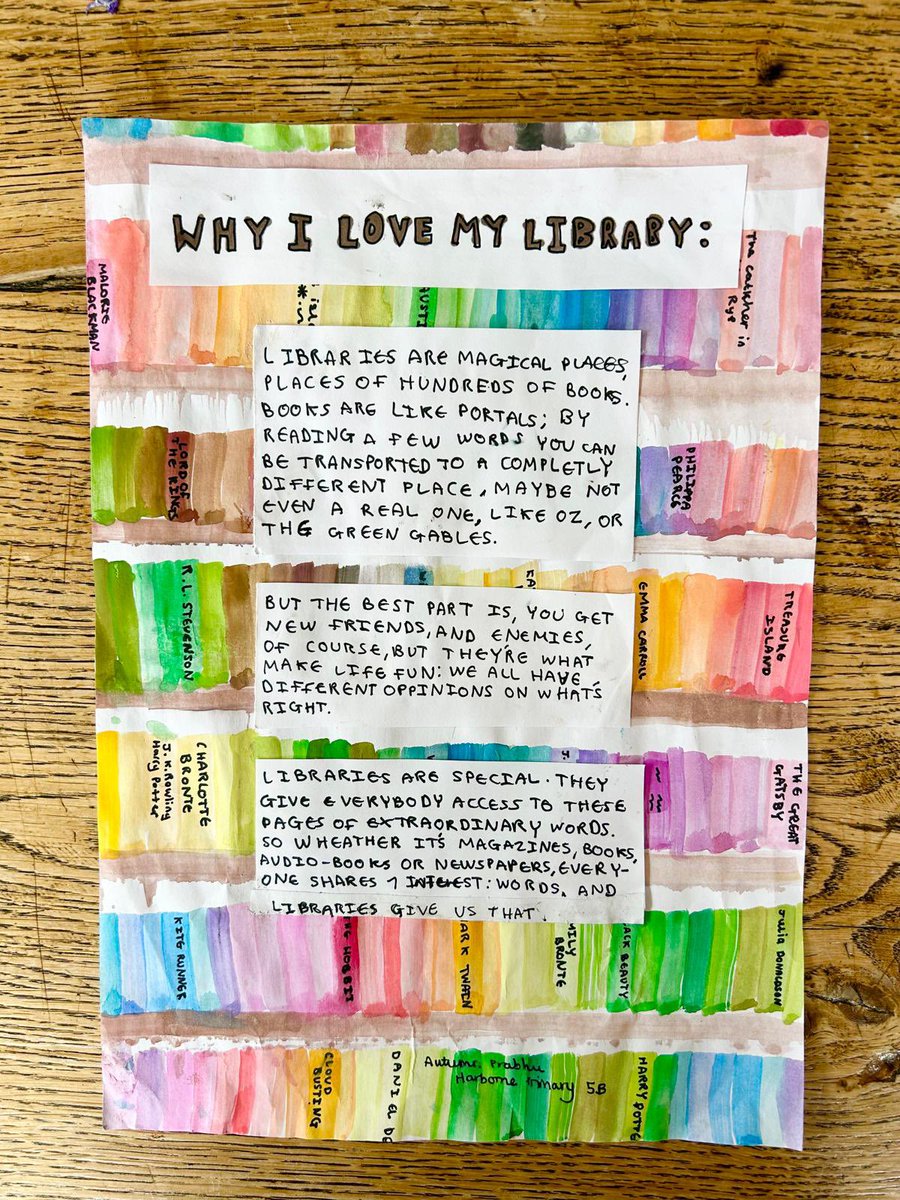 WHY I LOVE MY LIBRARY:
MALORIE
BLACKMAN
The catcher in
Rye
LIBRARIES ARE MAGICAL PLACES,
PLACES OF HUNDREDS OF BOOKS.
BOOKS ARE LIKE PORTALS; BY
READING A FEW WORDS YOU CAN
BE TRANSPORTED TO A COMPLETLY
DIFFERENT PLACE, MAYBE NOT
EVEN A REAL ONE, LIKE OZ, OR
THE GREEN GABLES.
LORD OF
THE RINGS
PHILIPPA
PEARCE
R.L. STEVENSON
EMMA CARROLL
TREASURE
ISLAND
BUT THE BEST PART IS, YOU GET
NEW FRIENDS, AND ENEMIES,
OF COURSE, BUT THEY'RE WHAT
MAKE LIFE FUN: WE ALL HAVE
DIFFERENT OPPINIONS ON WHAT'S
RIGHT.
CHARLOTTE
BRONTE
J.K. Rowling
Harry Potter
THE GREAT
GATSBY
LIBRARIES ARE SPECIAL. THEY
GIVE EVERYBODY ACCESS TO THESE
PAGES OF EXTRAORDINARY WORDS.
SO WHEATHER IT'S MAGAZINES, BOOKS,
AUDIO-BOOKS OR NEWSPAPERS, EVERY-
ONE SHARES 1 INTEREST: WORDS. AND
LIBRARIES GIVE US THAT.
KITE RUNNER
HE HOBBIT
ARK TWAIN
MILY
BRONTE
ACK BEAUTY
Julia DONALDSON
CLOUD
BUSTING
DANIEL DE
Autumn Prabhu
Harborne Primary 5B
HARRY POTTE